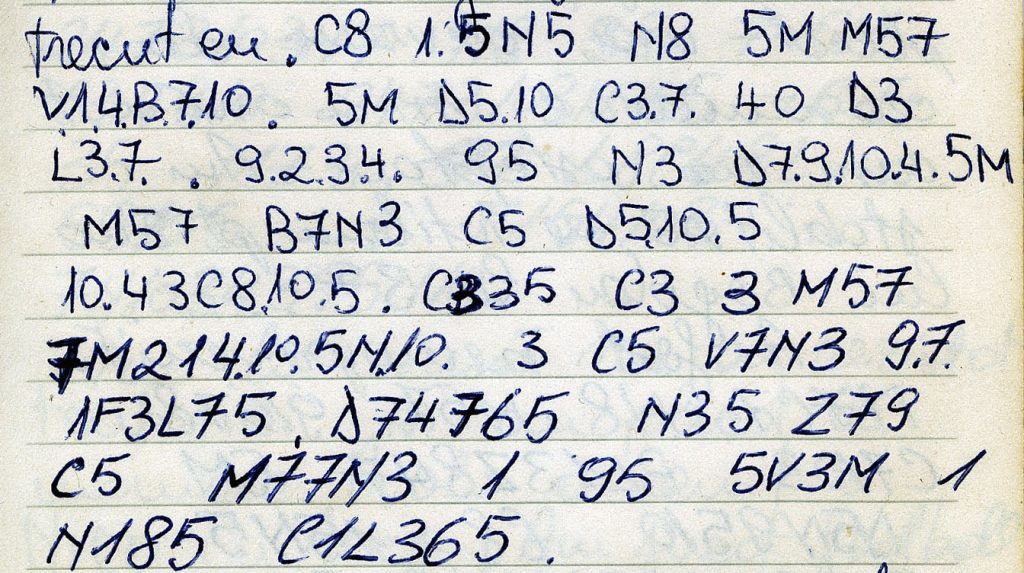 trecut eu. C8 1.5N5 N8 5M M57
V.1.4.B.7.10. 5M D5.10 C3.7. 40 D3
L3.7. . 9.2.3.4. 95 N3 D7.9.10.4.5M
M57 B7N3 C5 D5.10.5
10.43C8.10.5. C335 C3 3 M57
7M214.10.5N.10. 3 C5 V7N3 9.7.
1F3L75. D74765 N35 Z79
C5 M77N3 1 95 5V3M 1
N185 C1L365.